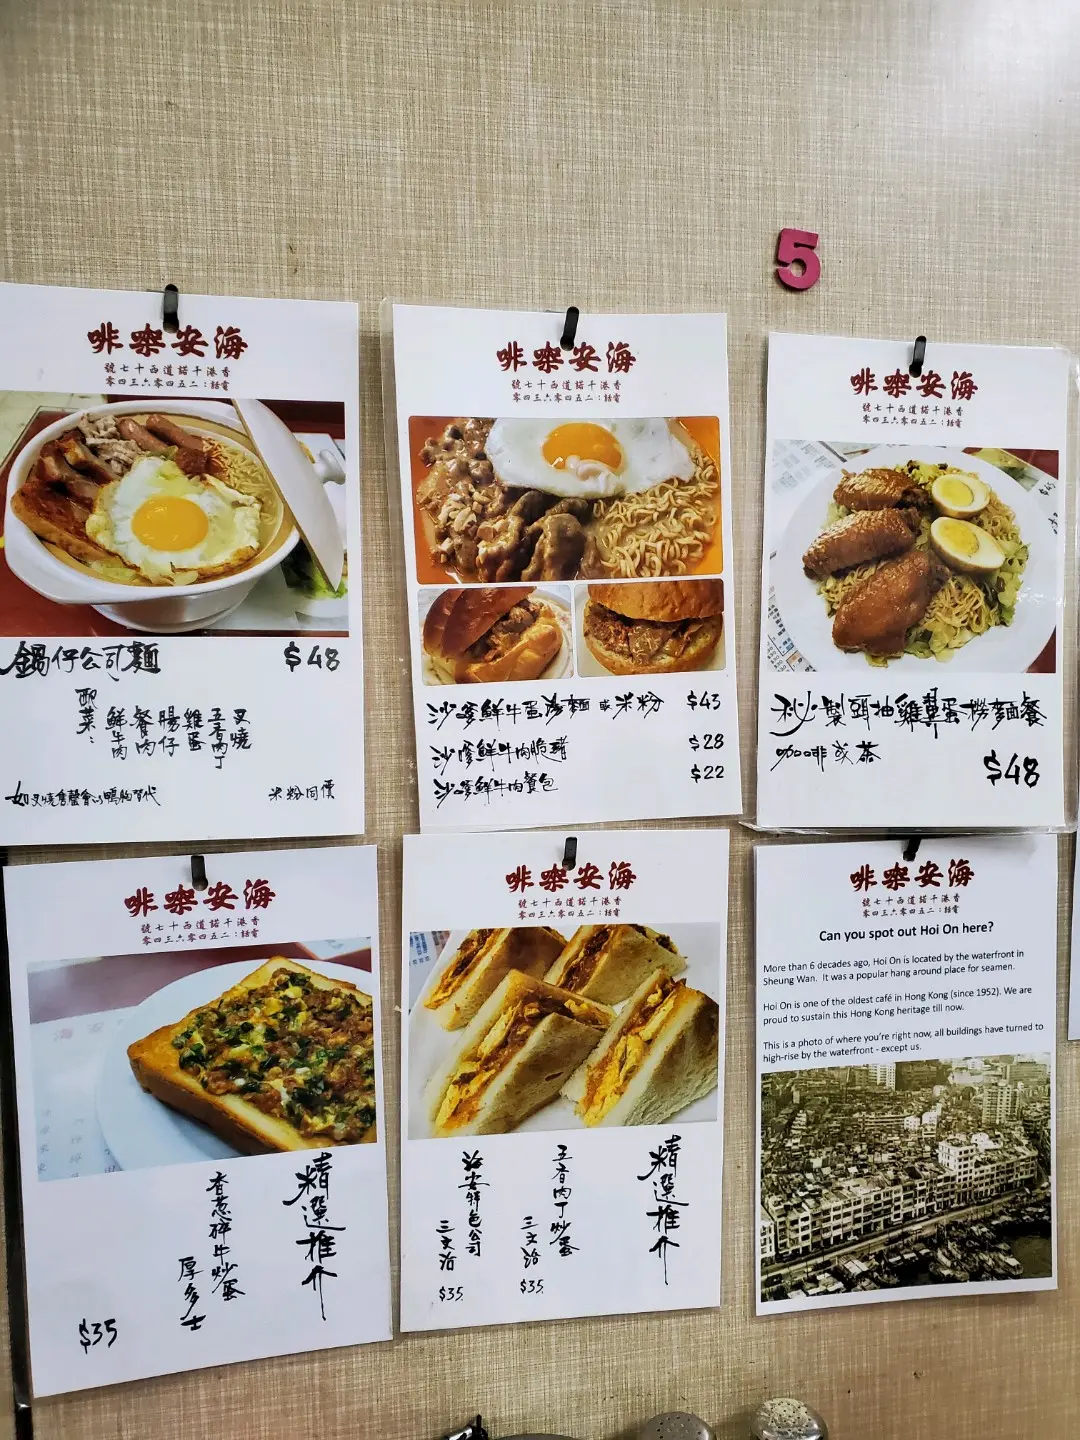 5
海安㗎啡
香港干諾道西十七號
電話：二五四零六三四零
鍋仔公司麵 $48
配菜：
鮮牛肉
餐肉
腸仔
雞蛋
五香肉丁
叉燒
如叉燒售罄會以鴨胸替代
米粉同價
海安㗎啡
香港干諾道西十七號
電話：二五四零六三四零
沙嗲鮮牛蛋湯麵 或 米粉 $43
沙嗲鮮牛肉脆豬 $28
沙嗲鮮牛肉餐包 $22
海安㗎啡
香港干諾道西十七號
電話：二五四零六三四零
秘製頭抽雞翼蛋撈麵餐
咖啡或茶
$48
海安㗎啡
香港干諾道西十七號
電話：二五四零六三四零
精選推介
香蔥碎牛炒蛋
厚多士
$35
海安㗎啡
香港干諾道西十七號
電話：二五四零六三四零
精選推介
五香肉丁炒蛋
三文治
$35
海安特色公司
三文治
$35
海安㗎啡
香港干諾道西十七號
電話：二五四零六三四零
Can you spot out Hoi On here?
More than 6 decades ago, Hoi On is located by the waterfront in
Sheung Wan. It was a popular hang around place for seamen.
Hoi On is one of the oldest café in Hong Kong (since 1952). We are
proud to sustain this Hong Kong heritage till now.
This is a photo of where you're right now, all buildings have turned to
high-rise by the waterfront - except us.